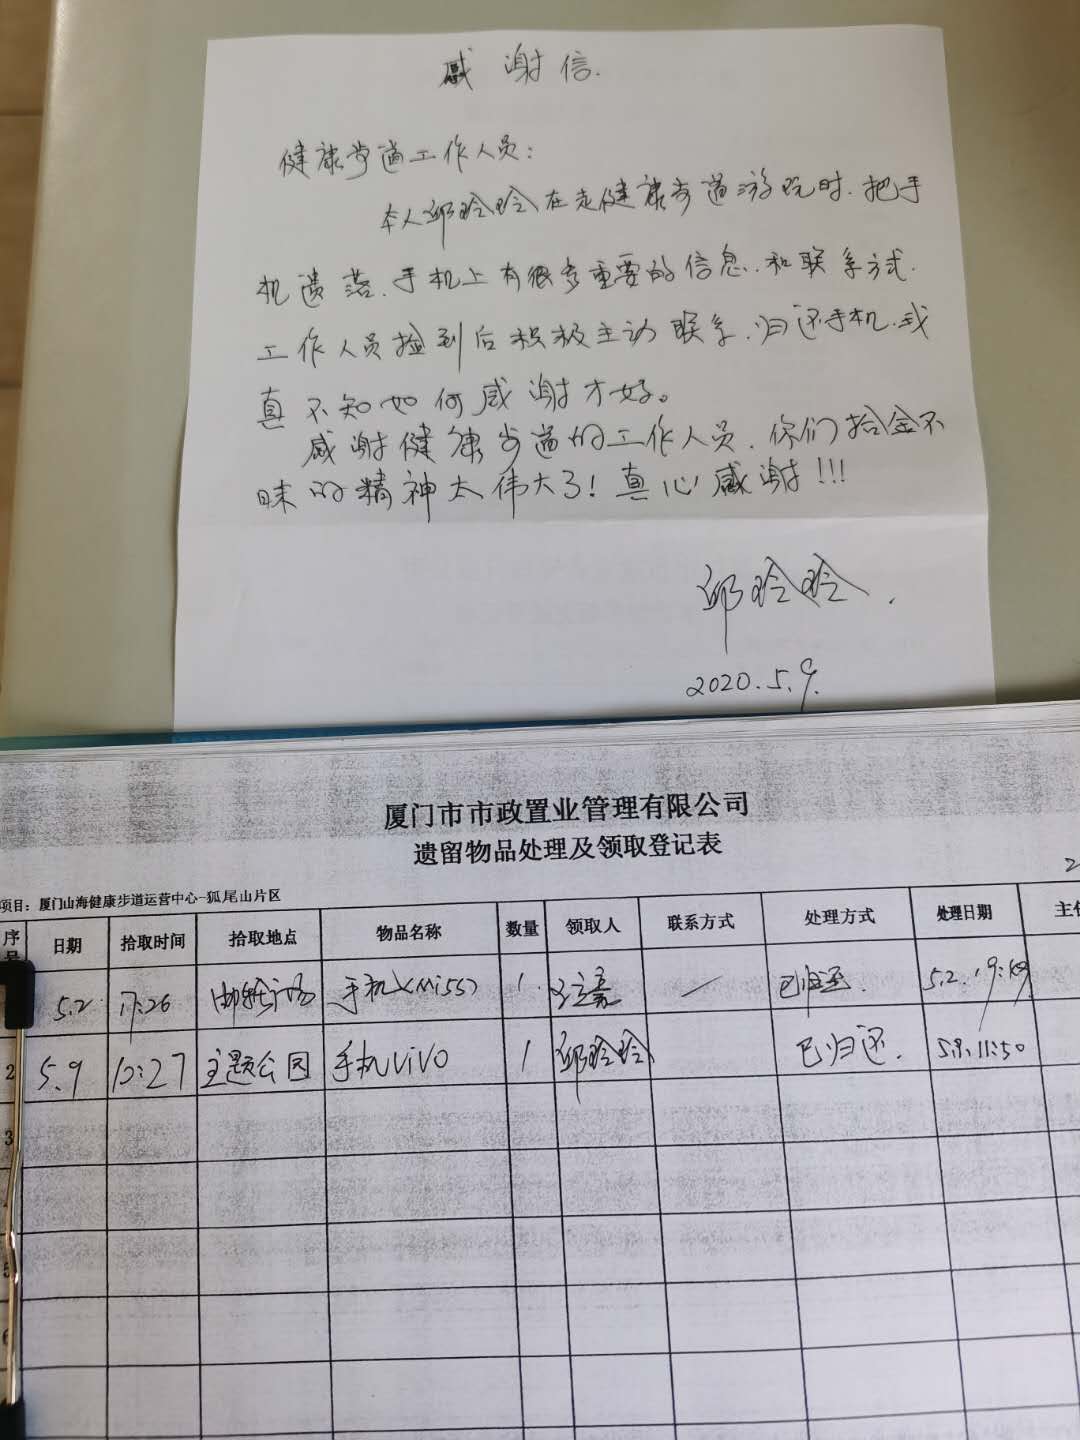 感谢信.
健康步道工作人员:
本人邱玲玲在走健康步道游玩时.把手
机遗落.手机上有很多重要的信息.和联系方式.
工作人员捡到后积极主动联系.归还手机.我
真不知如何感谢才好。
感谢健康步道的工作人员.你们拾金不
昧的精神太伟大了!真心感谢!!!
邱玲玲.
2020.5.9.
厦门市市政置业管理有限公司
遗留物品处理及领取登记表
项目：厦门山海健康步道运营中心-狐尾山片区
序号 日期 拾取时间 拾取地点 物品名称 数量 领取人 联系方式 处理方式 处理日期
5.2 17:26 手机 1. 已归还.
2 5.9 10:27 主题公园 手机VIVO 1 邱玲玲 已归还. 5.9.11:50
3
5
6